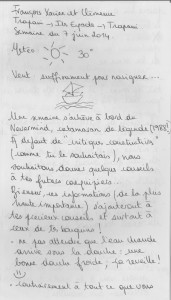 François Xavier et Clémence
Trapani → Iles Egades → Trapani
Semaine du 7 juin 2014
Météo 30°
Vent suffisamment pour naviguer...
Une semaine s'achève à bord du
Nevermind, catamaran de légende (1988)!
A défaut de "critique constructive"
(comme tu le souhaitais), nous
souhaitons donner quelques conseils
à tes futurs coéquipiers...
ces informations (de la plus
haute importance) s'ajouteront à
tes précieux conseils et surtout à
ceux de ta bouquins!
. ne pas attendre que l'eau chaude
arrive sous la douche: une
bonne douche froide, ça réveille!
. contrairement à tout ce que vous